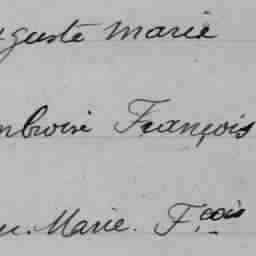 guste Marie
mbroise François
Marie. F.çois